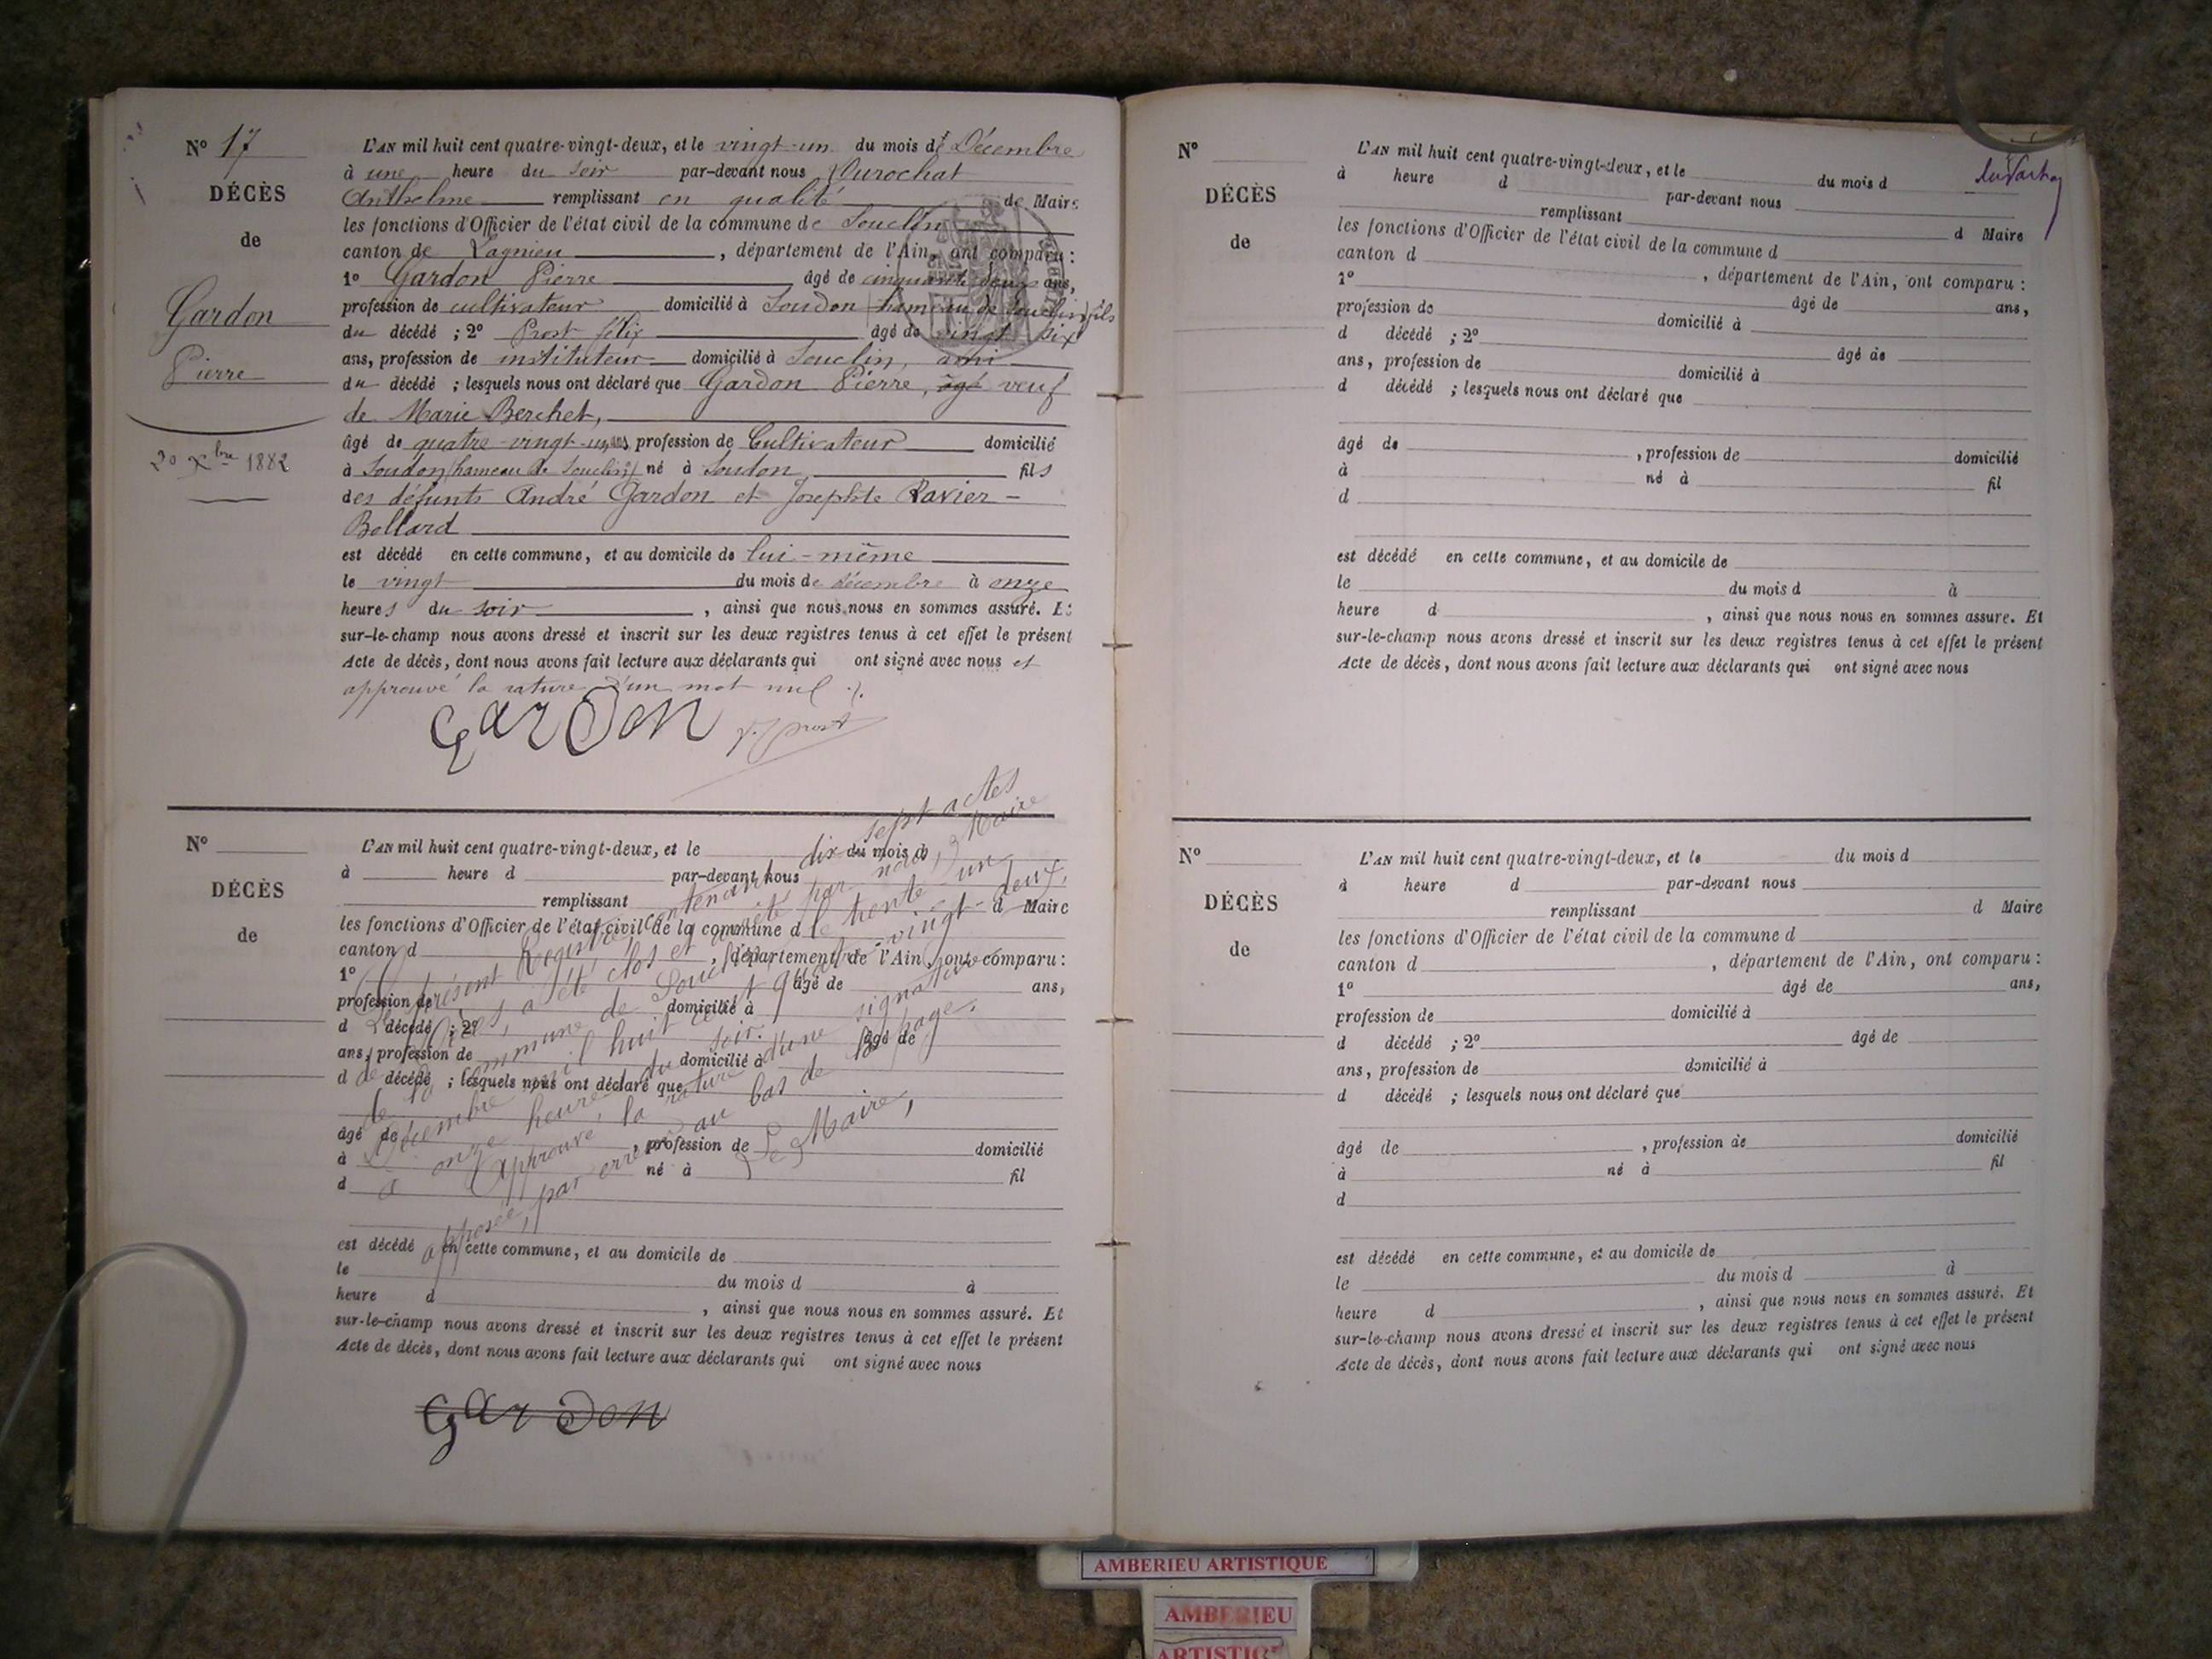 N° 17
DÉCÈS
de
Gardon
Pierre
20 Xbre 1882
L'AN mil huit cent quatre-vingt-deux, et le vingt-un du mois de Décembre
à une heure du soir par-devant nous Durochat
Anthelme remplissant en qualité de Maire
les fonctions d'Officier de l'état civil de la commune de Souclin
canton de Lagnieu, département de l'Ain, ont comparu :
1° Gardon Pierre âgé de cinquante deux ans,
profession de cultivateur domicilié à Soudon (hameau de Souclin) fils
du décédé ; 2° Prost félix âgé de vingt six
ans, profession de instituteur domicilié à Souclin, ami
du décédé ; lesquels nous ont déclaré que Gardon Pierre, âgé veuf
de Marie Berchet,
âgé de quatre-vingt-un ans, profession de Cultivateur domicilié
à Soudon (hameau de Souclin) né à Soudon fils
des défunts André Gardon et Josephte Ravier-
Bollard
est décédé en cette commune, et au domicile de lui-même
le vingt du mois de décembre à onze
heures du soir, ainsi que nous nous en sommes assuré. Et
sur-le-champ nous avons dressé et inscrit sur les deux registres tenus à cet effet le présent
Acte de décès, dont nous avons fait lecture aux déclarants qui ont signé avec nous et
approuvé la rature d'un mot nul ./.
Gardon
f. prost
N°
DÉCÈS
de
L'AN mil huit cent quatre-vingt-deux, et le du mois d
à heure d par-devant nous
remplissant d Maire
les fonctions d'Officier de l'état civil de la commune d
canton d , département de l'Ain, ont comparu :
1° âgé de ans,
profession de domicilié à
d décédé ; 2° âgé de
ans, profession de domicilié à
d décédé ; lesquels nous ont déclaré que
âgé de , profession de domicilié
à né à fil
d
est décédé en cette commune, et au domicile de
le du mois d à
heure d , ainsi que nous nous en sommes assuré. Et
sur-le-champ nous avons dressé et inscrit sur les deux registres tenus à cet effet le présent
Acte de décès, dont nous avons fait lecture aux déclarants qui ont signé avec nous
Le présent Registre, contenant dix sept actes
a été clos et arrêté par nous, Maire
de la commune de Souclin, le trente-un
Décembre mil huit cent quatre-vingt-deux,
à onze heures du soir.
Approuvé, la rature d'une signature
apposée, par erreur au bas de la page.
Le Maire,
Gardon
N°
DÉCÈS
de
L'AN mil huit cent quatre-vingt-deux, et le du mois d
à heure d par-devant nous
remplissant d Maire
les fonctions d'Officier de l'état civil de la commune d
canton d , département de l'Ain, ont comparu :
1° âgé de ans,
profession de domicilié à
d décédé ; 2° âgé de
ans, profession de domicilié à
d décédé ; lesquels nous ont déclaré que
âgé de , profession de domicilié
à né à fil
d
est décédé en cette commune, et au domicile de
le du mois d à
heure d , ainsi que nous nous en sommes assuré. Et
sur-le-champ nous avons dressé et inscrit sur les deux registres tenus à cet effet le présent
Acte de décès, dont nous avons fait lecture aux déclarants qui ont signé avec nous
N°
DÉCÈS
de
L'AN mil huit cent quatre-vingt-deux, et le du mois d
à heure d par-devant nous
remplissant d Maire
les fonctions d'Officier de l'état civil de la commune d
canton d , département de l'Ain, ont comparu :
1° âgé de ans,
profession de domicilié à
d décédé ; 2° âgé de
ans, profession de domicilié à
d décédé ; lesquels nous ont déclaré que
âgé de , profession de domicilié
à né à fil
d
est décédé en cette commune, et au domicile de
le du mois d à
heure d , ainsi que nous nous en sommes assuré. Et
sur-le-champ nous avons dressé et inscrit sur les deux registres tenus à cet effet le présent
Acte de décès, dont nous avons fait lecture aux déclarants qui ont signé avec nous
AMBERIEU ARTISTIQUE
AMBERIEU
ARTISTIQ